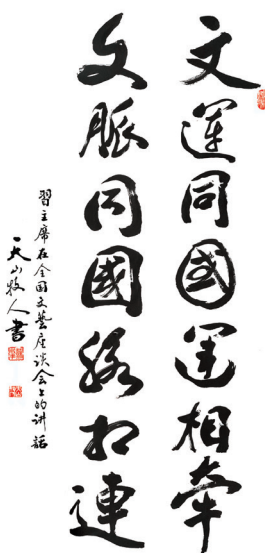 文運同國運相牽
文脈同國脉相連
習主席在全国文藝座谈会上的讲話
天山牧人書